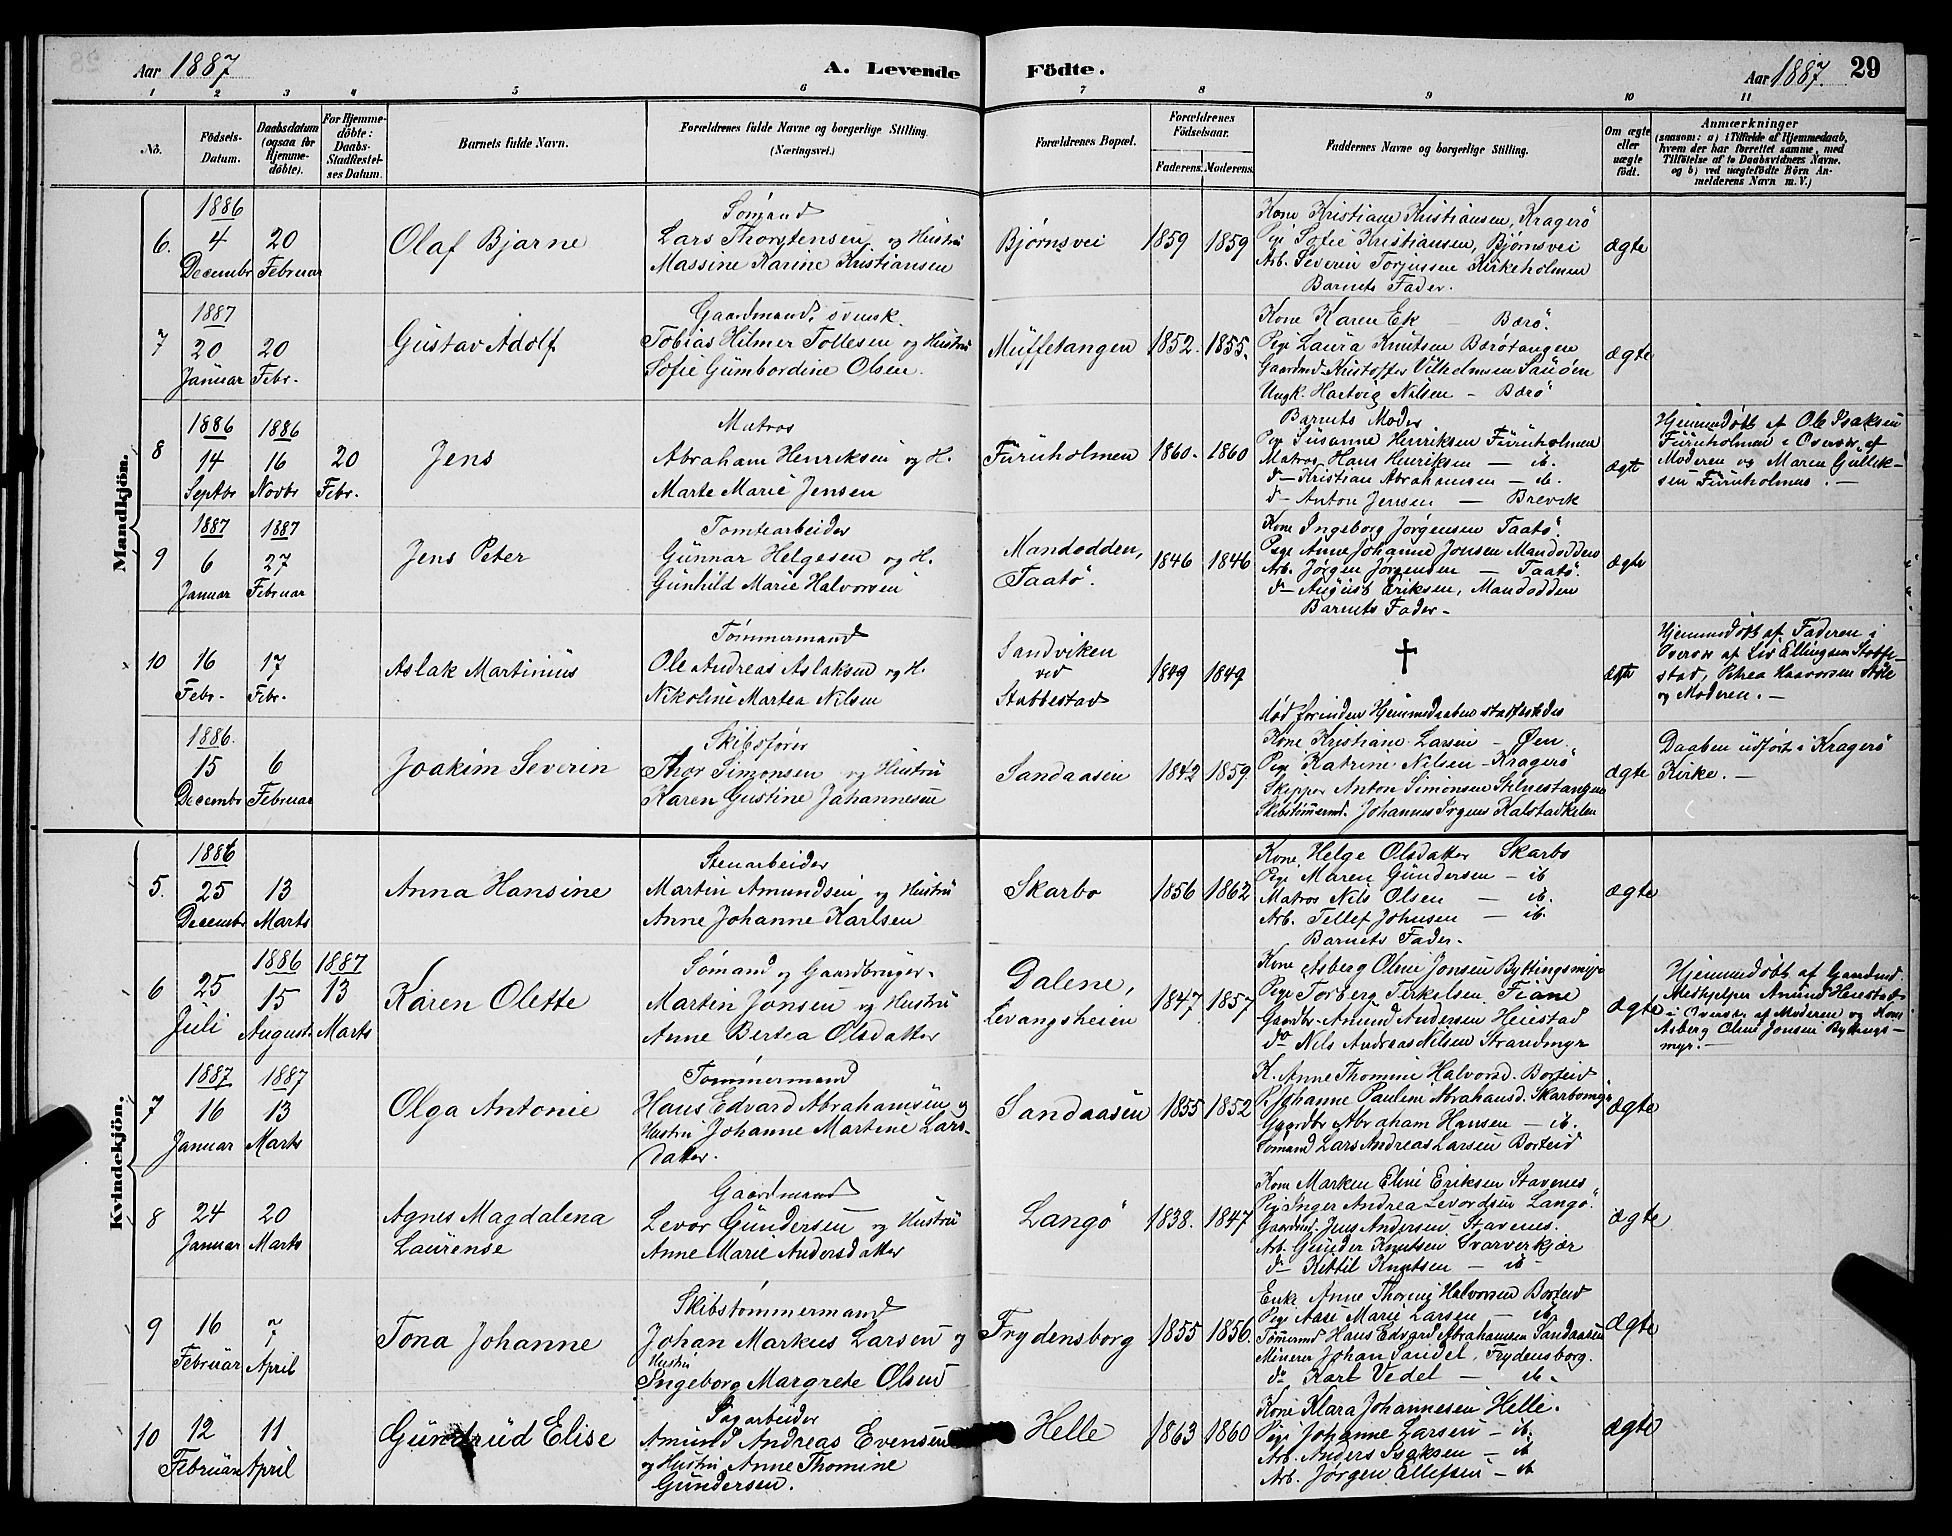 Aar 1887
A. Levende
Födte.
Aar 1887.
29
1 2 3 4 5 6 7 8 9 10 11
No.
Födsels-
Datum.
Daabsdatum
(ogsaa for
Hjemme-
döbte).
For Hjemme-
döbte:
Daabs-
Stadfæstel-
ses Datum.
Barnets fulde Navn.
Forældrenes fulde Navne og borgerlige Stilling.
(Næringsvei.)
Forældrenes Bopæl.
Forældrenes
Födselsaar.
Faderens. Moderens.
Faddernes Navne og borgerlige Stilling.
Om ægte
eller
uægte
födt.
Anmærkninger
(saasom: a) i Tilfælde af Hjemmedaab,
hvem der har forrettet samme, med
Tilföielse af to Daabsvidners Navne.
og b) ved uægtefödte Börn An-
melderens Navn m. V.)
Mandkjön.
6.
1886
4
Decembr
20
Februar
Olaf Bjarne
Sømand
Lars Thorstensen og Hustru
Massine Karine Kristiansen
Bjørnsvei
1859
1859
Kone Kristiane Kristiansen, Kragerø
Pige Sofie Kristiansen, Bjørnsvei
Arb. Severin Torjussen Kirkeholmen
Barnets Fader.
ægte
7
1887
20
Januar
20
Febr.
Gustav Adolf
Gaardmand, svensk.
Tobias Hilmer Tollesen og Hustru
Sofie Gumbordine Olsen.
Muffetangen
1852.
1855.
Kone Karen Ek — Barø.
Pige Laura Knutsen Barøtangen
Gaardmd Kristoffer Vilhelmsen Sauøen
Ungk. Hartvig Nilsen - Barø
ægte
8
1886
14
Septbr
1886
16
Novbr
20
Febr.
Jens
Matros
Abraham Henriksen og H.
Marte Marie Jensen
Furuholmen
1860.
1860
Barnets Moder
Pige Susanne Henriksen Furuholmen
Matros Hans Henriksen — ib.
do— Kristian Abrahamsen — ib.
do— Anton Jensen — Brevik
ægte
Hjemmedøbt af Ole Isaksen
Furuholmen i Overvær af
Moderen og Maren Gullik-
sen Furuholmen. —
9
1887
6
Januar
1887
27
Februar
Jens Peter
Tomtearbeider
Gunnar Helgesen og H.
Gunhild Marie Halvorsen
Mandodden,
Taatø.
1846
1846
Kone Ingeborg Jørgensen Taatø.
Pige Anne Johanne Jonsen Mandodden
Arb. Jørgen Jørgensen — Taatø.
do— August Eriksen, Mandodden
Barnets Fader.
ægte
10
16
Febr.
17
Febr.
Aslak Martinius
Tømmermand
Ole Andreas Aslaksen og H.
Nikoline Martea Nilsen
Sandviken
ved
Stabbestad
1849
1849
†
død forinden Hjemmedaaben stadfæstedes
ægte
Hjemmedøbt af Faderen i
Overvær af Liv Ellingsen Stabbe-
stad, Petrea Haavorsen Støle
og Moderen. —
1886.
15
Decembr
6
Februar
Joakim Severin
Skibsfører
Thor Simonsen og Hustru
Karen Gustine Johannesen
Sandaasen
1842
1859
Kone Kristiane Larsen - Øen.
Pige Katrine Nilsen - Kragerø
Skipper Anton Simonsen Stilnestangen
Skibstømmermd. Johannes Kalstadkilen
ægte
Daaben udført i Kragerø
Kirke. —
Kvindekjön.
5.
1886
25
Decembr
13
Marts
Anna Hansine
Stenarbeider
Martin Amundsen og Hustru
Anne Johanne Karlsen
Skarbo
1856
1862
Kone Helge Olsdatter Skarbo
Pige Maren Gundersen — ib
Matros Nils Olsen — ib.
Arb. Tellef Johnsen — ib.
Barnets Fader.
ægte
6
25
Juli
1886
15
August
1887
13
Marts
Karen Olette
Sømand og Gaardbruger.
Martin Jonsen og Hustru
Anne Bertea Olsdatter
Dalene,
Levangsheien
1847
1857
Kone Asberg Oline Jonsen Byttingsmyr
Pige Torberg Terkelsen Fiane
Gaardbr. Amund Andersen Heistad
do Nils Andreas Nilsen Strandmyr
ægte
Hjemmedøbt af Gaardmd.
Medhjelper Amund Heistad
i Overvær af Moderen og Kone
Asberg Oline Jonsen Byttings-
myr. —
7
1887
16
Januar
1887
13
Marts
Olga Antonie
Tømmermand
Hans Edvard Abrahamsen og
Hustru Johanne Martine Lars-
datter.
Sandaasen
1855
1852
K. Anne Thomine Halvorsd. Borteid
P. Johanne Pauline Abrahamsd. Skarbomyr
Gaardbr Abraham Hansen — ib.
Sømand Lars Andreas Larsen Borteid
ægte
8
24
Januar
20
Marts
Agnes Magdalena
Laurense
Gaardmand
Levor Gundersen og Hustru
Anne Marie Andersdatter
Langø
1838.
1847
Kone Marken Eline Eriksen Stavenes
Pige Inger Andrea Levordsen Langø.
Gaardmd. Jens Andersen Stavenes.
Arb. Gunder Knutsen Svarverkjær
do— Kittil Knutsen — ib.
ægte
9
16
Februar
7
April
Tona Johanne
Skibstømmermand
Johan Markus Larsen og
Hustru
Ingeborg Margrete Olsen
Frydensborg
1855
1856
Enke Anne Thorine Halvorsen Borteid
Pige Aase Marie Larsen — ib.
Tømrmd Hans Edvard Abrahamsen Sandaasen
Minerer Johan Sandel, Frydensborg.
do Karl Vedel — ib.
ægte
10
12
Februar
11
April
Gundrud Elise
Sagarbeider
Amund Andreas Evensen
og Hustru Anne Thomine
Gundersen.
Helle
1863
1860
Kone Klara Johannesen Helle.
Pige Johanne Larsen — ib.
Arb. Anders Isaksen — ib
Arb. Jørgen Ellefsen — ib
ægte